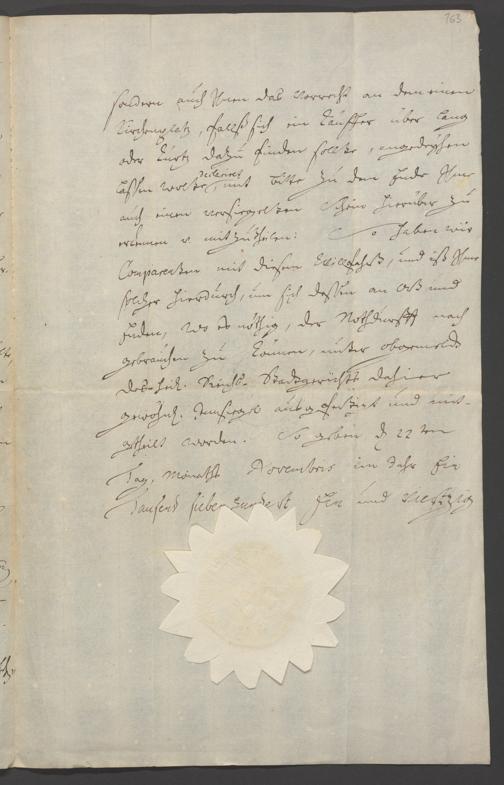 163
sondern auch Ihnen das Vorrecht an dem einen
Kirchenplatz, falls sich ein Käuffer über lang
oder kurtz dazu finden sollte, angedeyhen
lassen wolte, mit bitte zu dem Ende Ihme
auch einen versiegelten Schein hierüber zu
erkennen u. mitzutheilen: So haben wir
Comparenten mit diesem willfahrt, und ist Ihme
solcher hierdurch, um sich dessen an Ort und
Enden, wo es nöthig, der Nothdurfft nach
gebrauchen zu können, unter obgemelde
des Heil. Reichs-Stadtgerichts dahier
gewöhnl. Innsiegel ausgefertiget und mit-
getheilt worden. So geben d. 22ten
Tag, Monaths Novembris im Jahr Ein
Tausend sieben hundert Ein und Viertzig